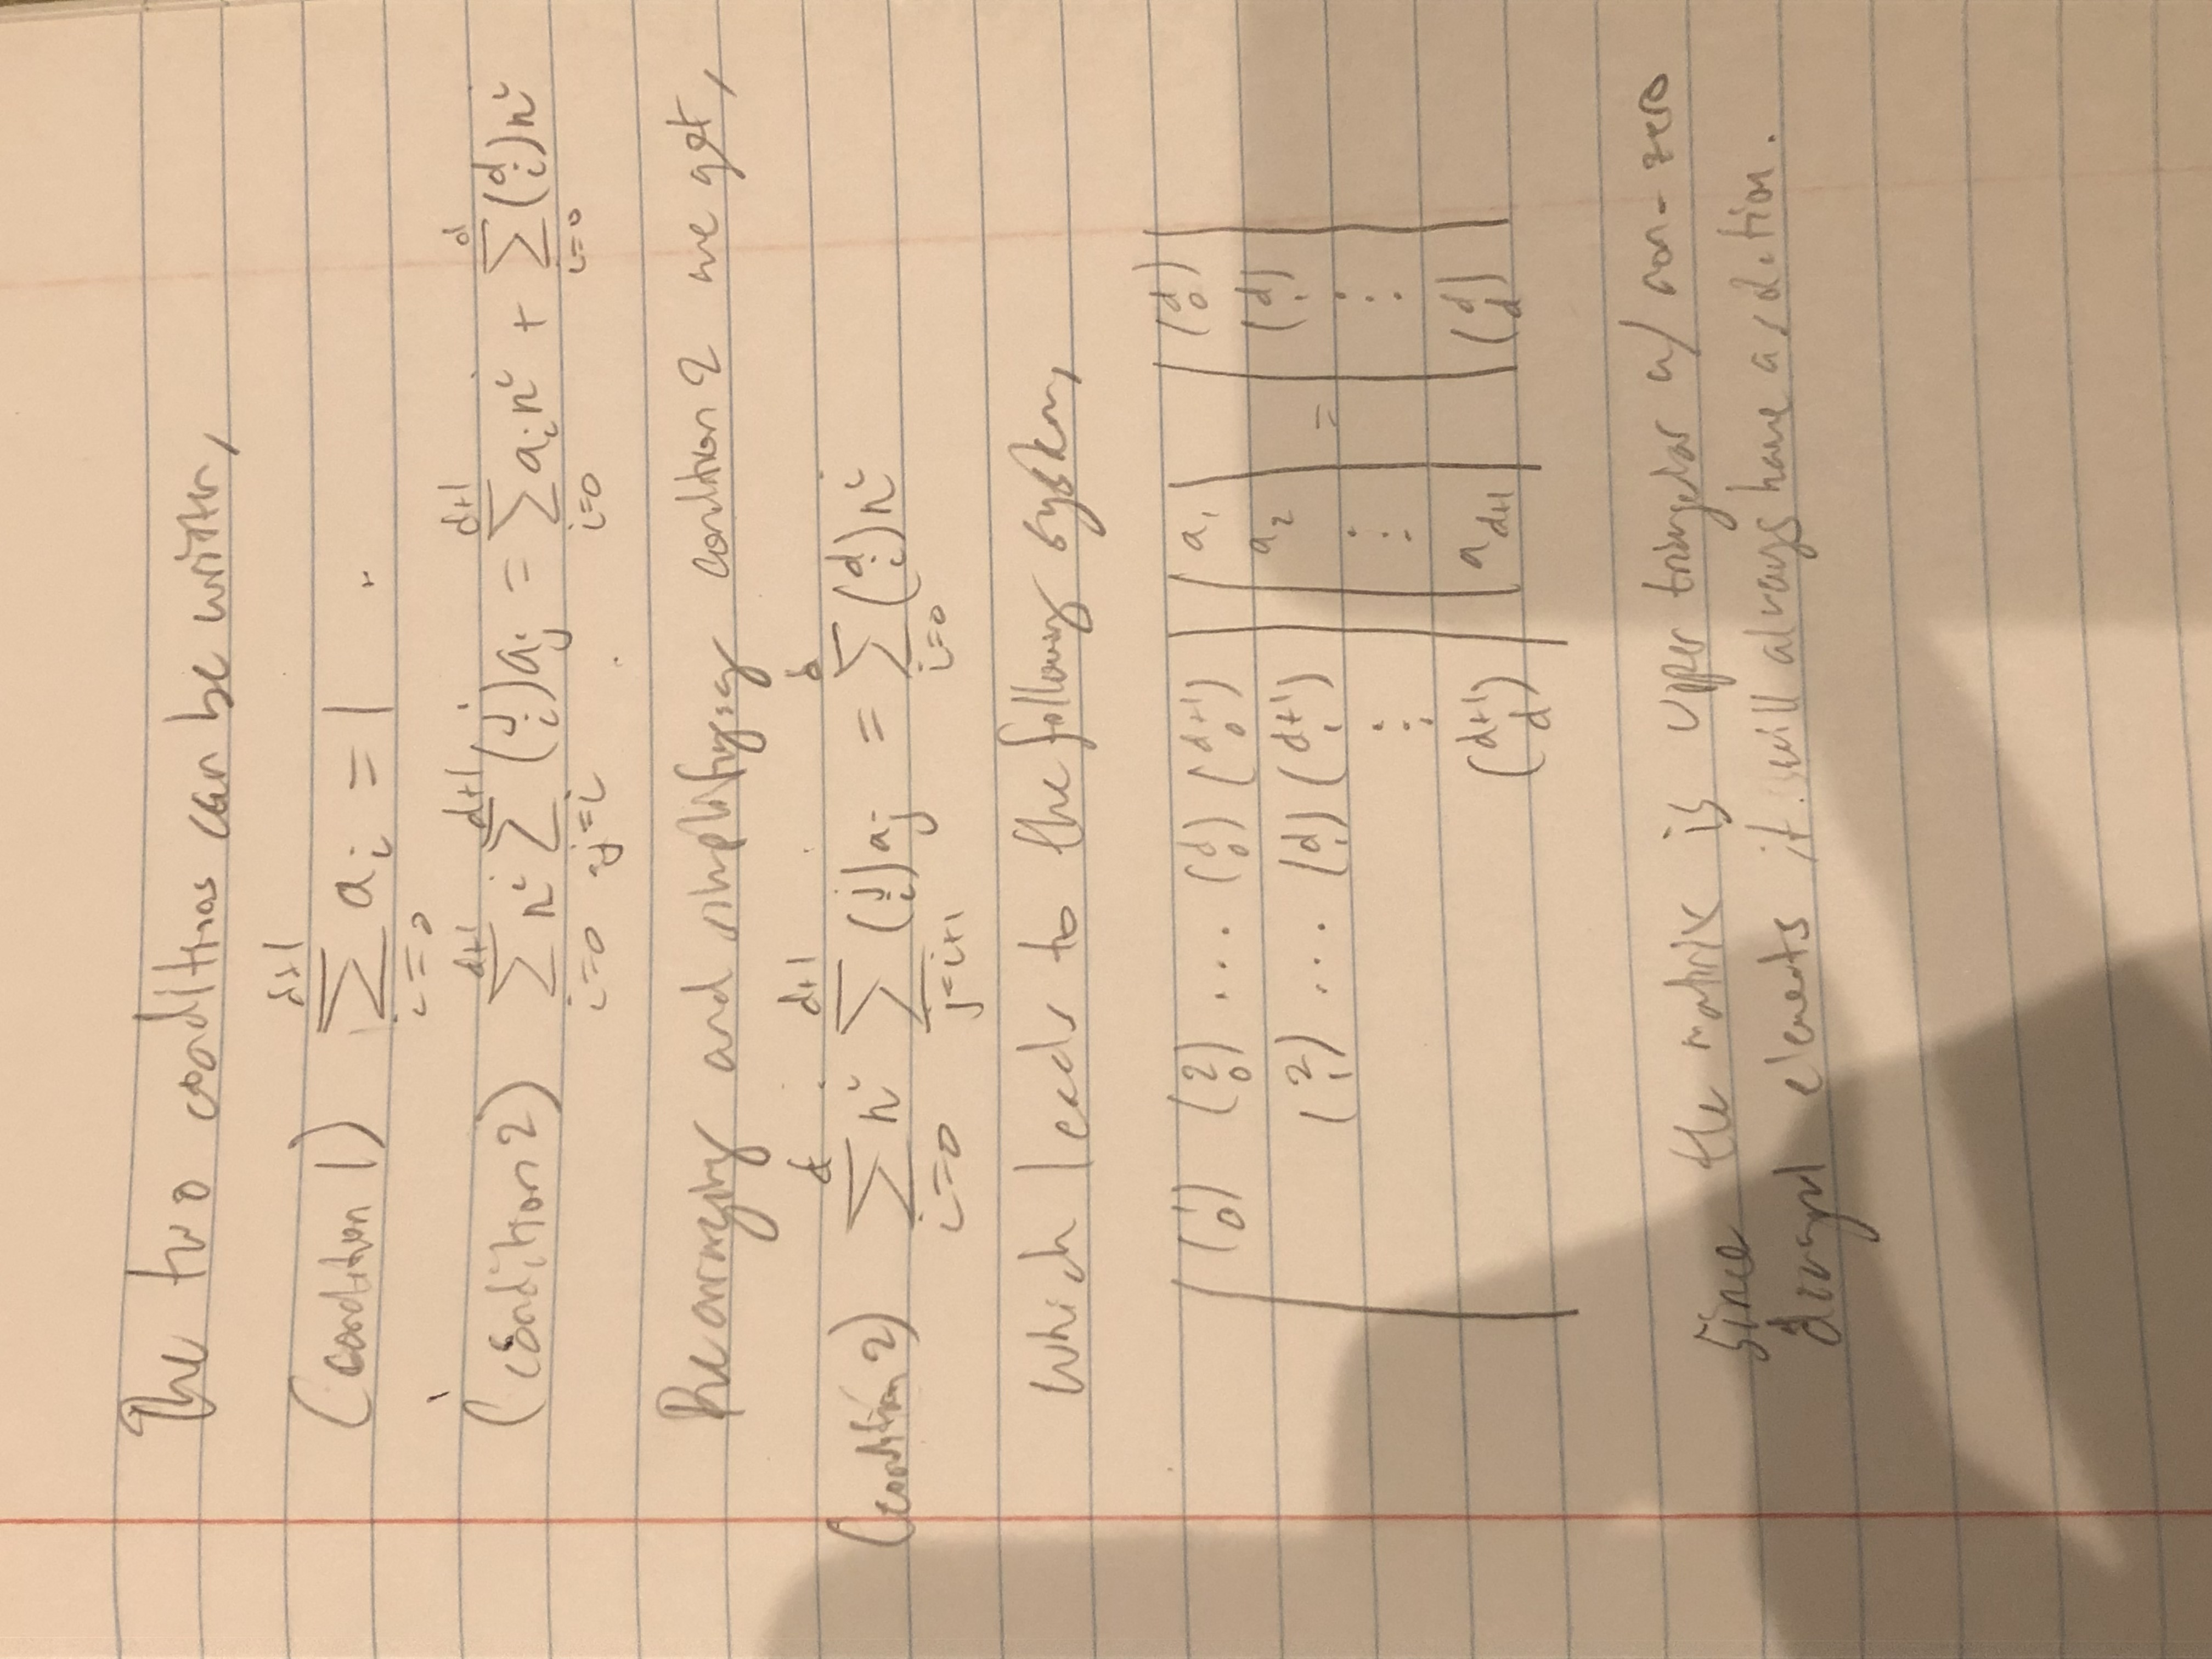 The two conditions can be written,
(condition 1) \sum_{i=0}^{d+1} a_i = 1 .
(condition 2) \sum_{i=0}^{d+1} n^i \sum_{j=i}^{d+1} \binom{j}{i} a_j = \sum_{i=0}^{d+1} a_i n^i + \sum_{i=0}^{d} \binom{d}{i} n^i
Rearranging and simplifying condition 2 we get,
(condition 2) \sum_{i=0}^{d} n^i \sum_{j=i+1}^{d+1} \binom{j}{i} a_j = \sum_{i=0}^{d} \binom{d}{i} n^i
Which leads to the following system,
| \binom{1}{0} \binom{2}{0} ... \binom{d}{0} \binom{d+1}{0} | | a_1 | | \binom{d}{0} |
| \binom{2}{1} ... \binom{d}{1} \binom{d+1}{1} | | a_2 | = | \binom{d}{1} |
| ⋮ | | ⋮ | | ⋮ |
| \binom{d+1}{d} | | a_{d+1} | | \binom{d}{d} |
Since the matrix is upper triangular w/ non-zero
diagonal elements it will always have a solution.